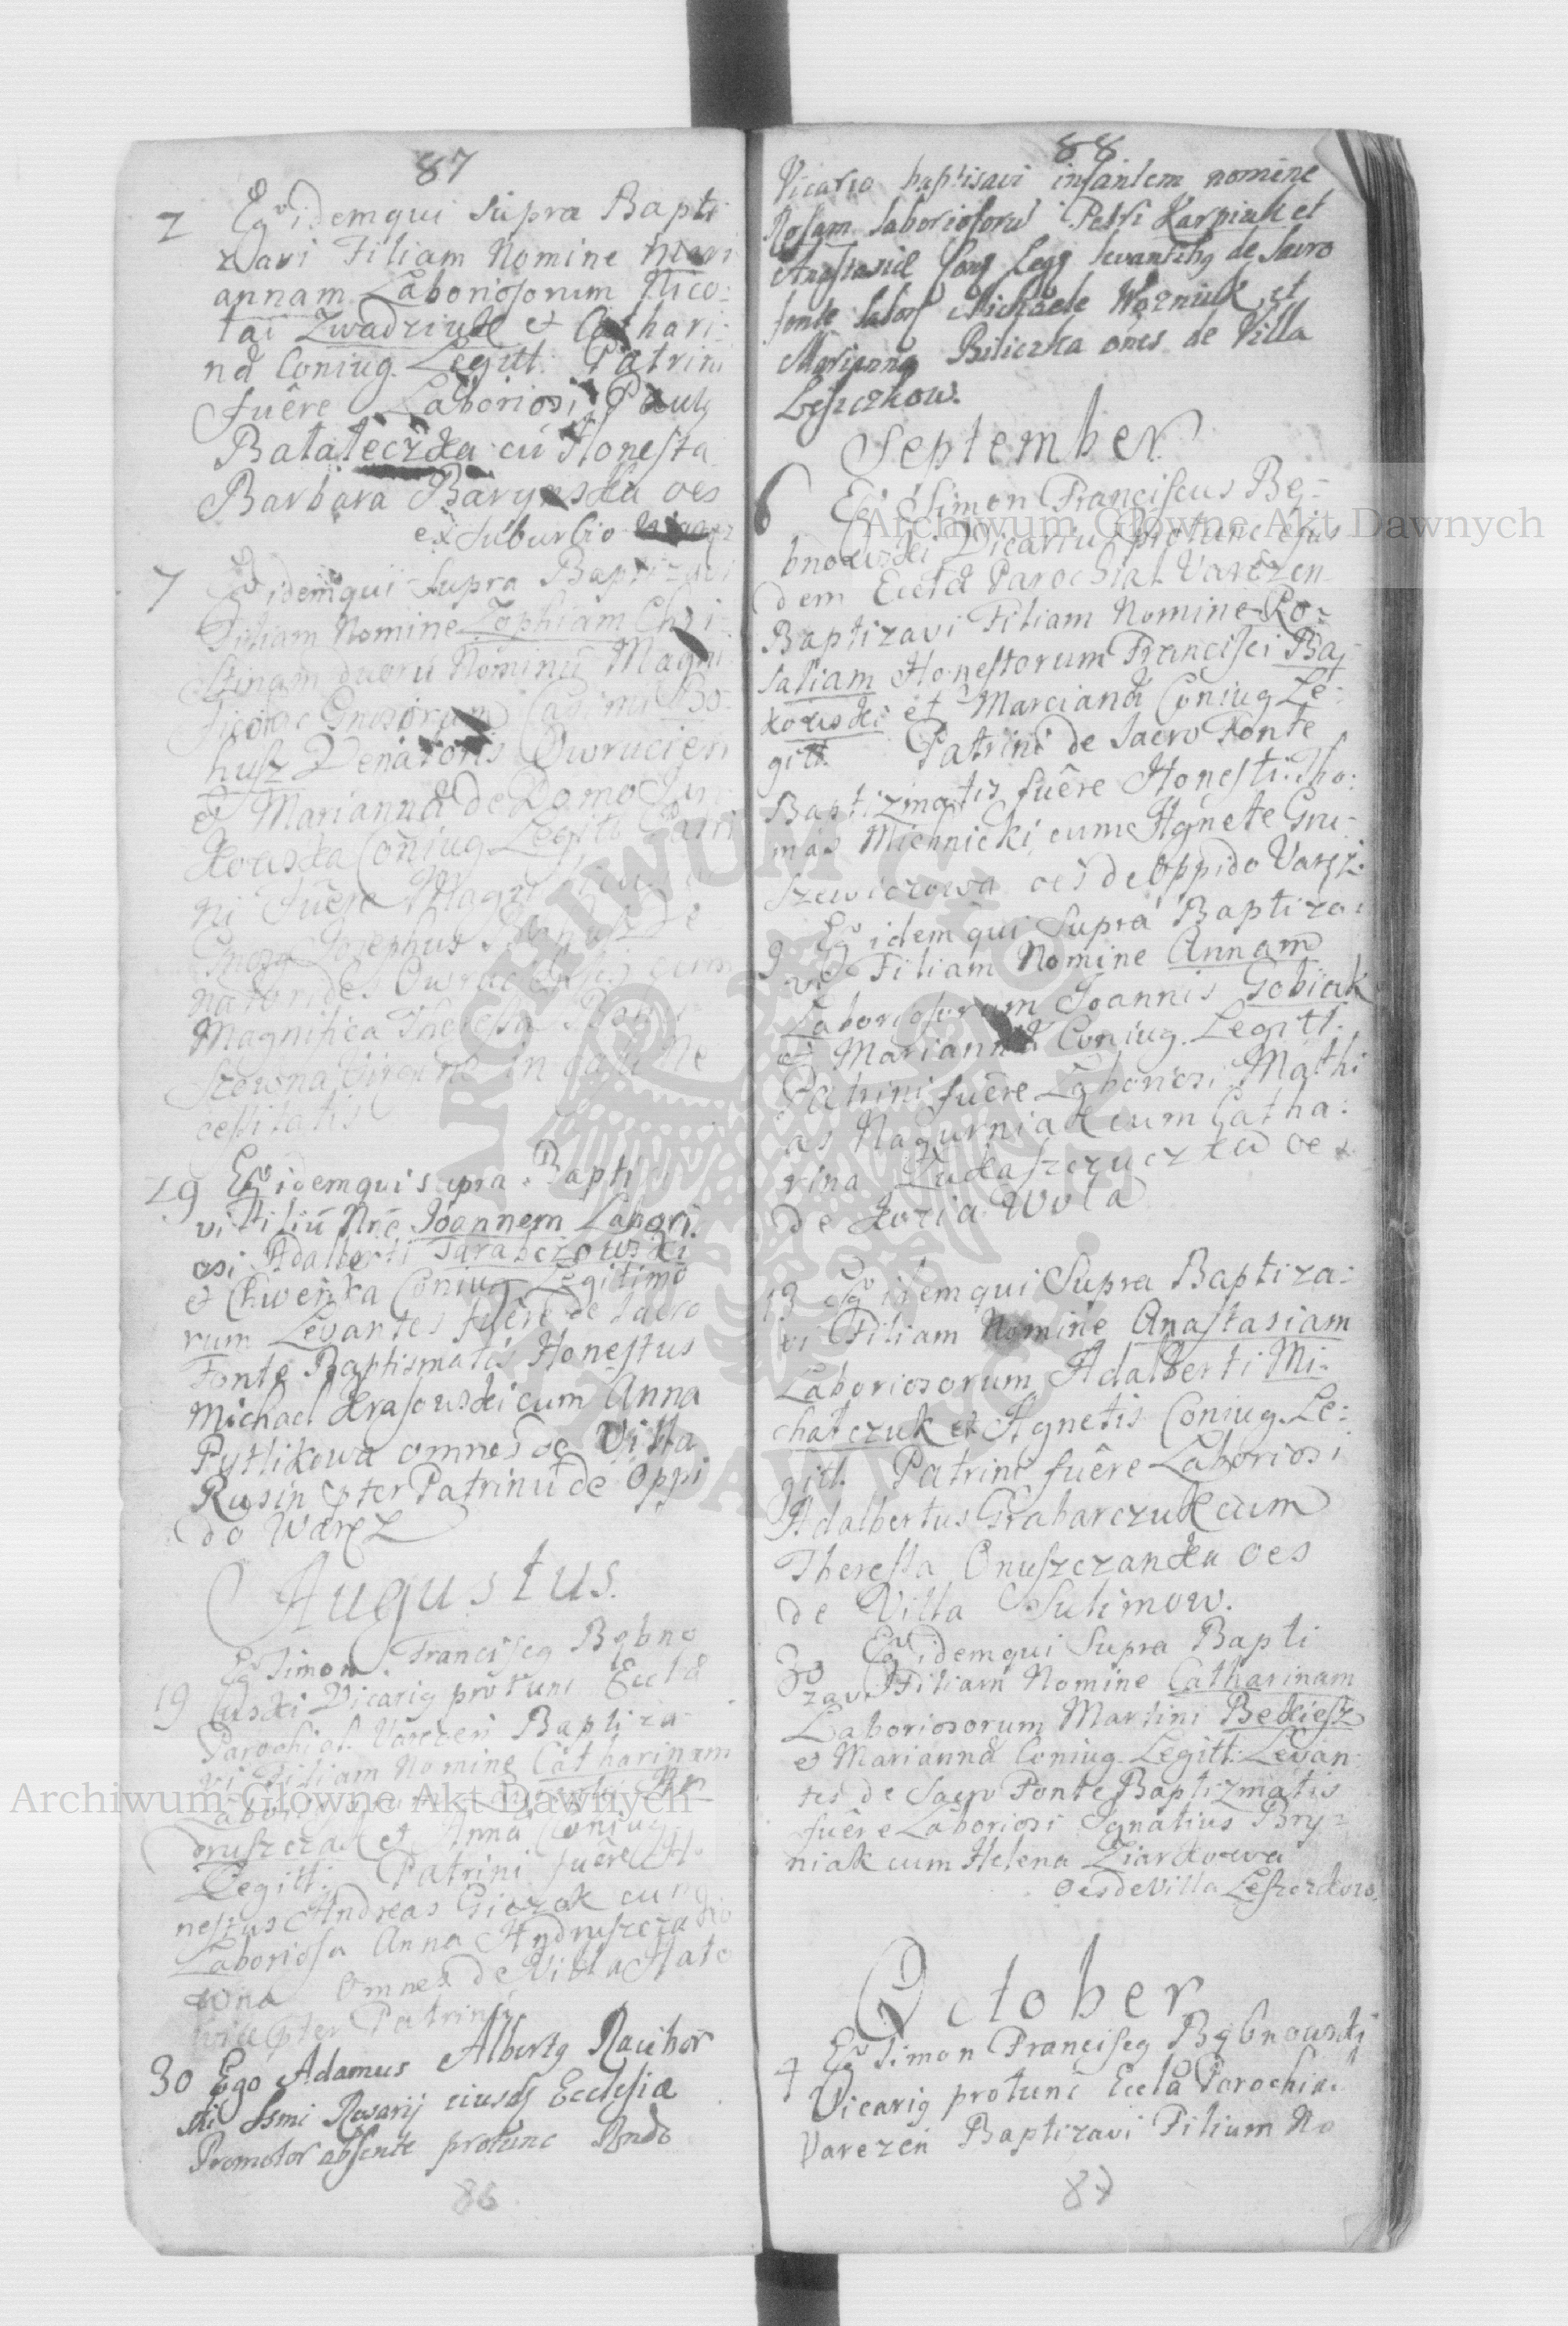 87
2 Eg° idem qui supra Bapti
zavi Filiam Nomine Mari
annam Laboriosorum Nico:
lai Zwadziuk et Cathari:
næ Coniug. Legitt: Patrini
fuêre Laboriosi Paulg
Batałeczka cū Honesta
Barbara Barynska oes
ex Suburbio
7 Eg° idem qui Supra Baptizavi
Filiam Nomine Zophiam Chri
stinam duorū Nominū Magni
ficor ac Gnosorum Casimi Bo:
husz Venatoris Owrucien
et Mariannæ de Domo
kowska Coniug Legitt Patri
ni Fuêre Magni
Gnosg Josephus
natorides Owruc cum
Magnifica Theressa
szewna Virgine in casu Ne
cessitatis
29 Eg° idem qui supra Baptiza
vi Filiū Nnē Joannem Labori
osi Adalberti Tarabczowski
et Chwenka Coniug Legitimo
rum Levantes fuêre de Sacro
Fonte Baptismatis Honestus
Michael Krasowski cum Anna
Pytlikowa omnes de Villa
Rusin pter Patrinū de Oppi
do Waręz
Augustus.
19 Eg° Simon Franciscg Bębno
wski Vicarig protunc Ecclæ
Parochial. Varezen Baptiza
vi Filiam Nomine Catharinam
An
druszczak et Anna Coniug
Legitt: Patrini fuêre Ho
nestus Andreas Giczak cum
Laboriosa Anna Andruszczako
wna Omnes de Villa
pter Patrinū
30 Ego Adamus Albertg Racibor
ski Ssmi Rosarij eiusdē Ecclesiæ
Promotor absente protunc Rndo
86
88
Vicario baptisavi infantem nomine
Rosam laboriosorū Petri Karpiuk et
Anastasiæ Conj Legg levantibg de Sacro
fonte labor Michaele Wozniuk et
Marianna Biliczka ones de Villa
Leszczkow.
September
6 Eg° Simon Franciscus Bę:
bnowski Vicariu protunc ejus
dem Ecclæ Parochial. Varezen
Baptizavi Filiam Nomine Ro:
saliam Honestorum Francisci Ba
kowski et Marcianæ Coniug Le:
gitt. Patrini de Sacro Fonte
Baptizmatis fuêre Honesti Tho:
mas Michnicki cum Agnete Gru
szewiczowa oes de Oppido Varęz.
9 Eg° idem qui Supra Baptiza:
vi Filiam Nomine Annam
Laboriosorum Joannis Gobiak
et Mariannæ Coniug. Legitt.
Patrini fuêre Laboriosi Mathi
as Nagurniak cum Catha:
rina Łukaszczuczka oes
de Kozia Wola
13 Eg° idem qui Supra Baptiza:
vi Filiam Nomine Anastasiam
Laboriosorum Adalberti Mi:
chalczuk et Agnetis Coniug. Le:
gitt. Patrini fuêre Laboriosi
Adalbertus Grabarczuk cum
Theressa Onuszczanka oes
de Villa Sulimow.
30 Eg° idem qui Supra Bapti
zavi Filiam Nomine Catharinam
Laboriosorum Martini Bekiesz
et Mariannæ Coniug. Legitt: Levan
tes de Sacro Fonte Baptizmatis
fuêre Laboriosi Ignatius Bry:
niak cum Helena Ziarkowa
oes de Villa Leszczkow.
October
4 Eg° Simon Franciscg Bębnowski
Vicarig protunc Ecclæ Parochial
Varezen Baptizavi Filium No
87
Archiwum Główne Akt Dawnych
Archiwum Główne Akt Dawnych
ARCHIWUM GŁÓWNE AKT DAWNYCH